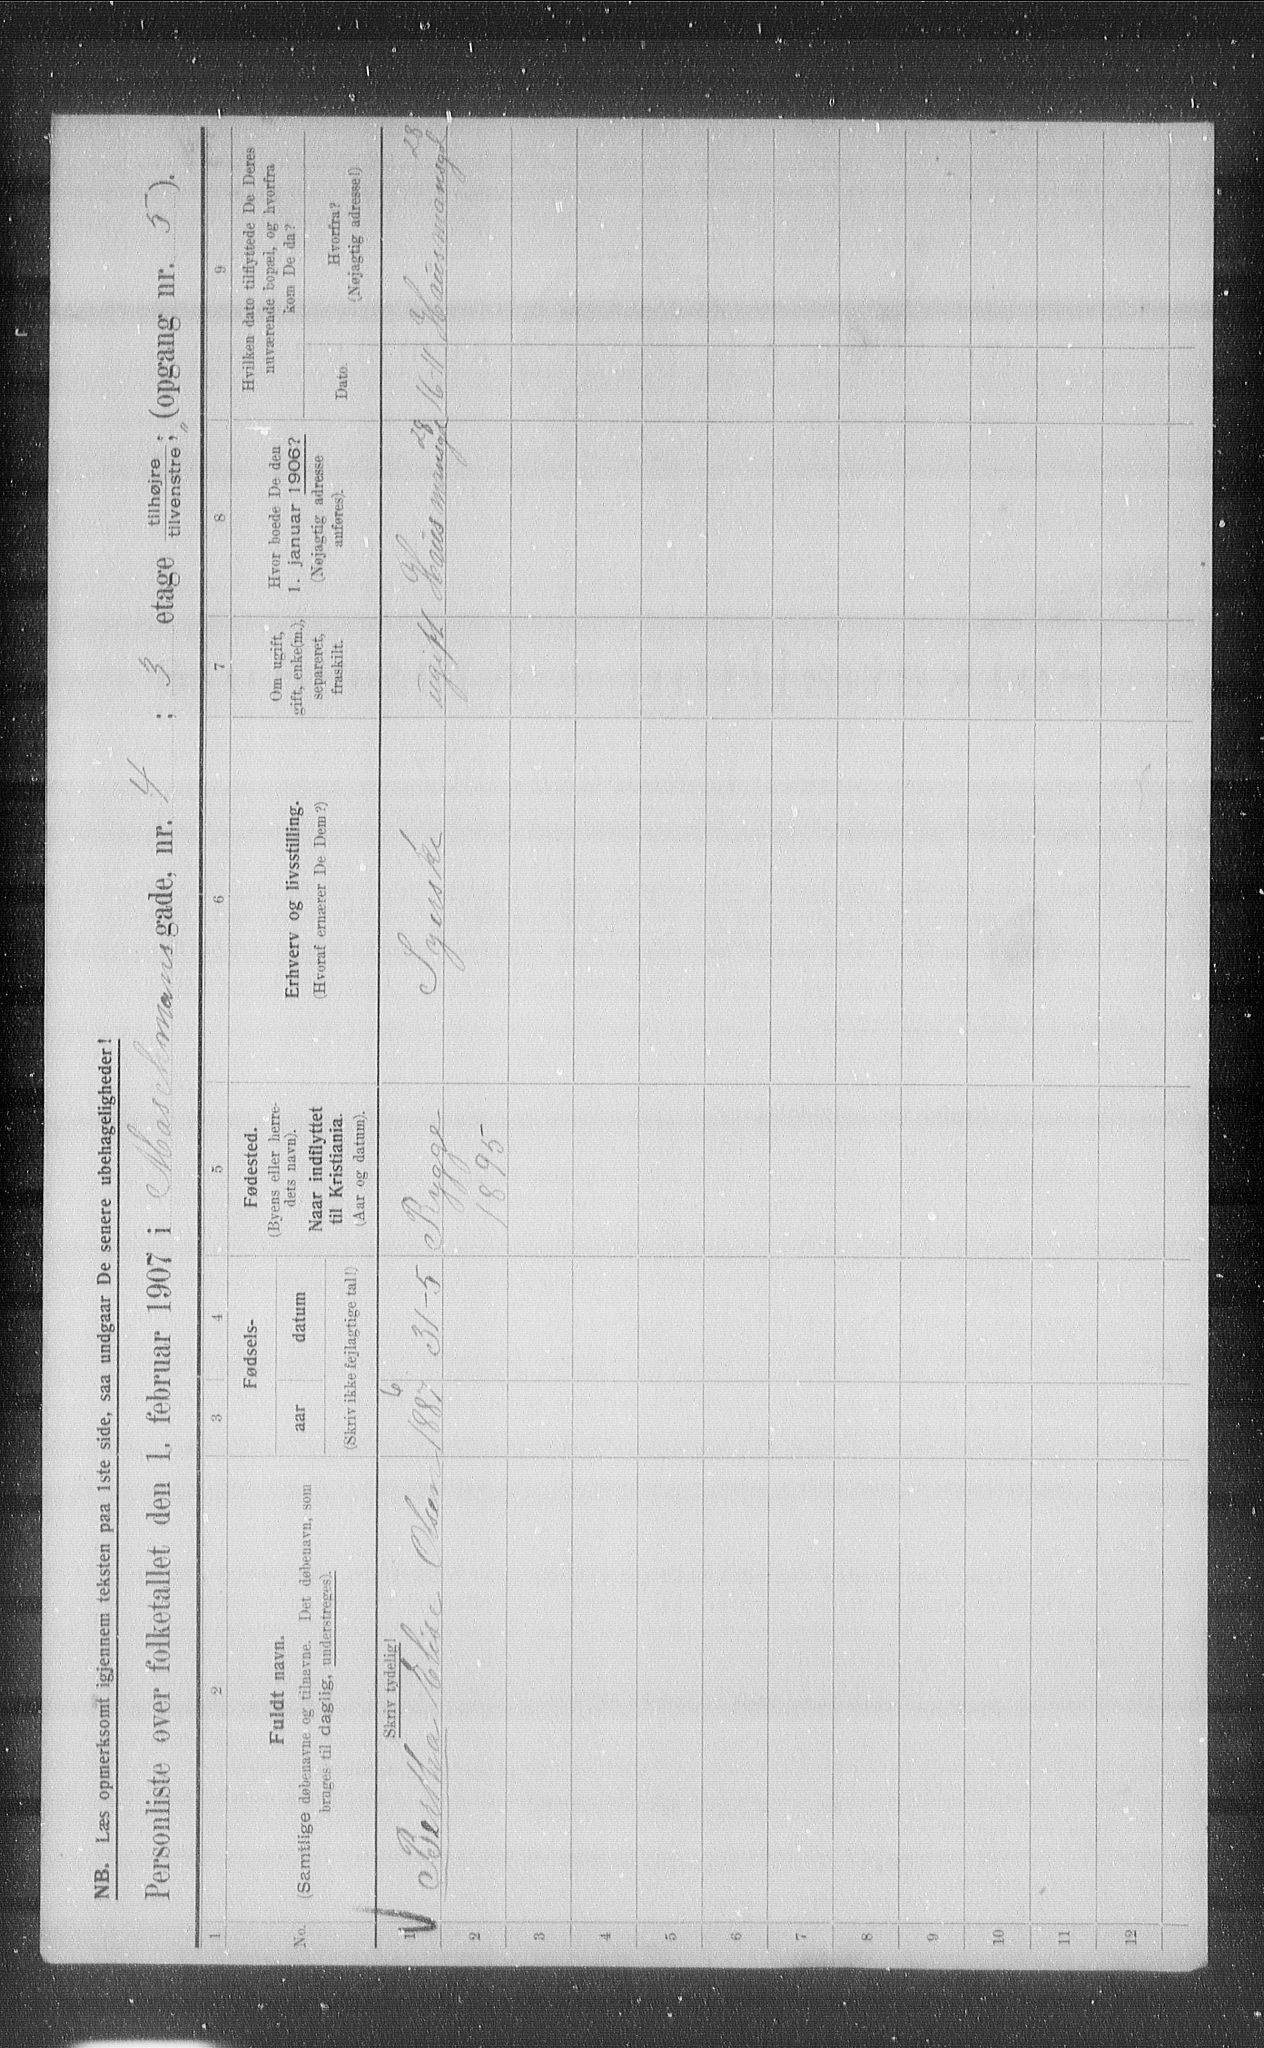 NB. Læs opmerksomt igjennem teksten paa 1ste side, saa undgaar De senere ubehageligheder!
Personliste over folketallet den 1. februar 1907 i Maschmansgade, nr. 4 ; 3 etage tilhøjre; tilvenstre; (opgang nr. 5).
1 2 3 4 5 6 7 8 9
No.
Fuldt navn.
(Samtlige døbenavne og tilnavne. Det døbenavn, som
bruges til daglig, understreges).
Fødsels-
aar datum
(Skriv ikke fejlagtige tal!)
Fødested.
(Byens eller herre-
dets navn).
Naar indflyttet
til Kristiania.
(Aar og datum).
Erhverv og livsstilling.
(Hvoraf ernærer De Dem?)
Om ugift,
gift, enke(m.),
separeret,
fraskilt.
Hvor boede De den
1. januar 1906?
(Nøjagtig adresse
anføres).
Hvilken dato tilflyttede De Deres
nuværende bopæl, og hvorfra
kom De da?
Dato.
Hvorfra?
(Nøjagtig adresse!)
Skriv tydelig!
1 Bertha Elise Olsen 1887 6 31-5 Rygge Syerske ugift Hausmansgt 28 16-11 Hausmansgt 28
1895
2
3
4
5
6
7
8
9
10
11
12